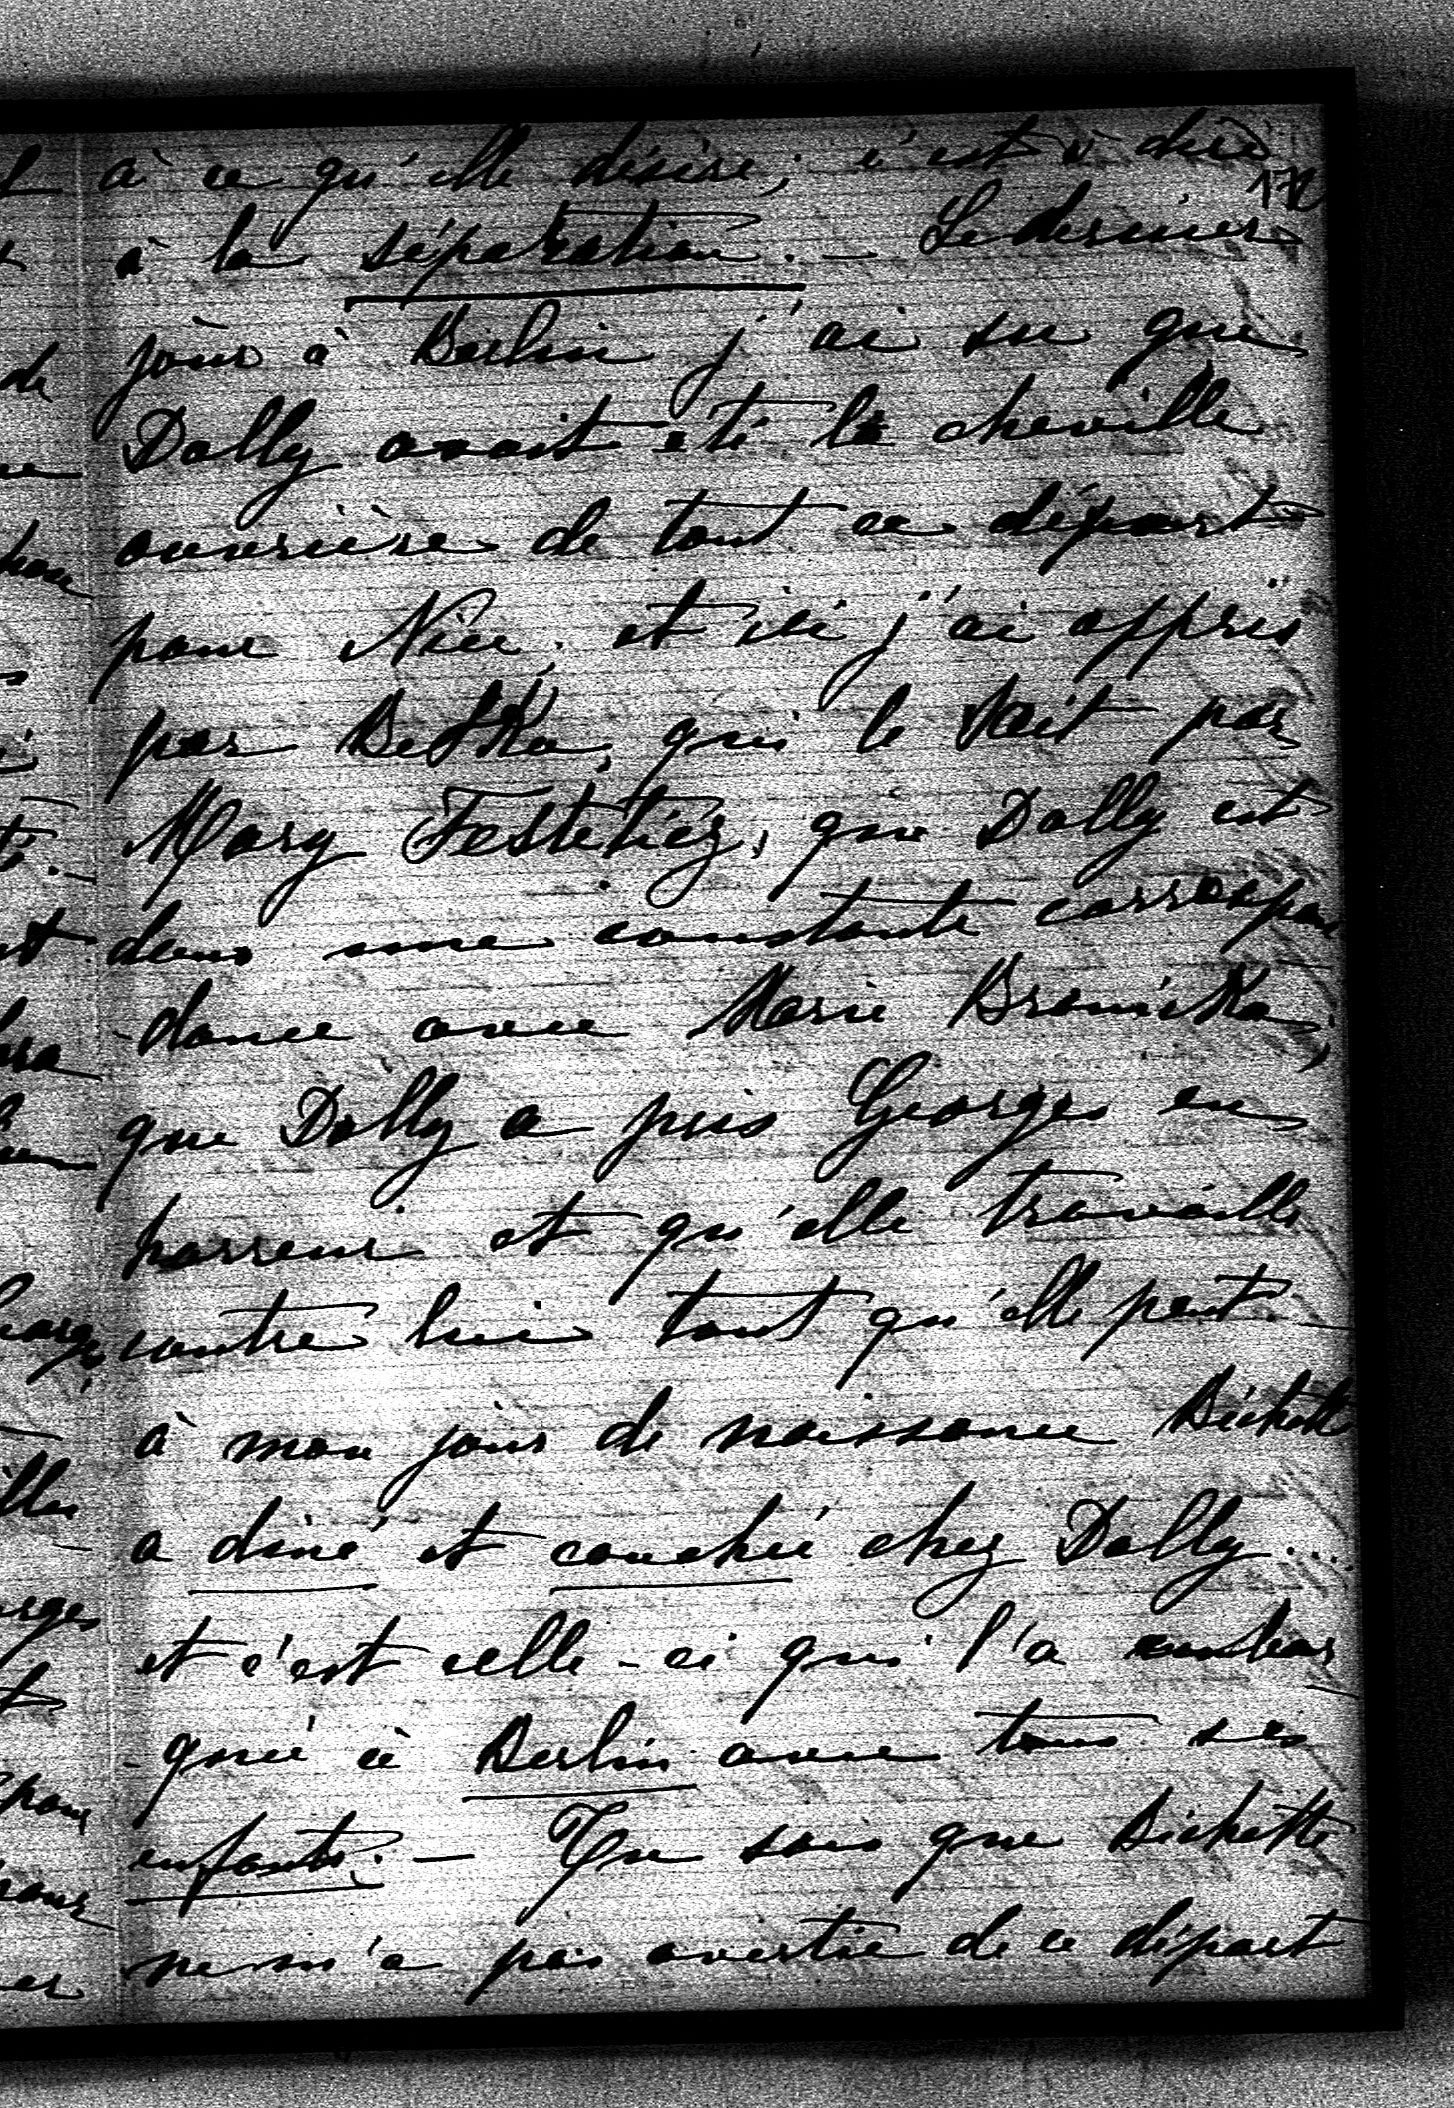 à ce qu'elle désire; c'est à dire
172
à la séparation. — Le dernier
jour à Berlin j'ai su que
Dolly avait été la cheville
ouvrière de tout ce départ
pour Nice; et ici j'ai appris
par Betka, qui le sait par
Mary Festetics, que Dolly est
dans une constante correspon
-dance avec Marie Branicka;
que Dolly a pris Georges en
horreur et qu'elle travaille
contre lui tant qu'elle peut. —
à mon jour de naissance Bichette
a diné et couchée chez Dolly...
et c'est celle-ci qui l'a embar
-quée à Berlin avec tous ses
enfants. — Tu sais que Bichette
ne m'a pas avertie de ce départ